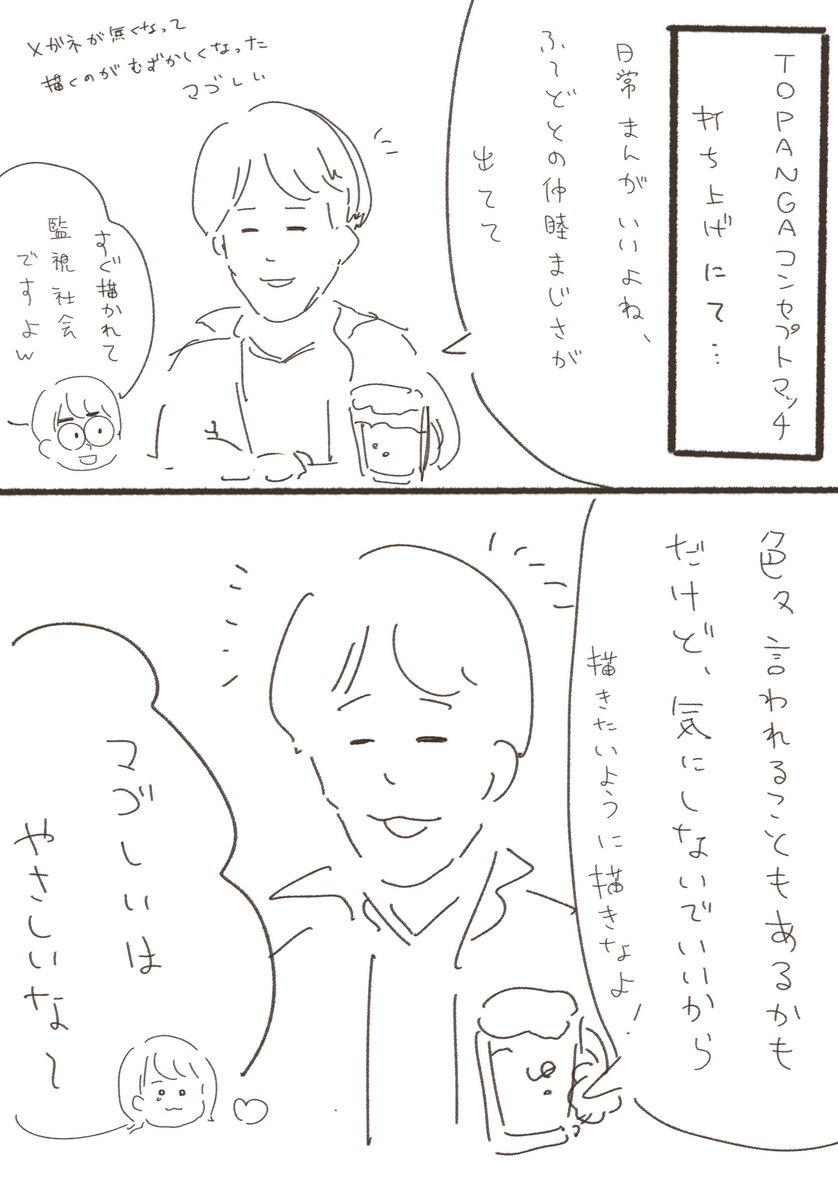 TOPANGAコンセプトマッチ
打ち上げにて…
日常まんがいいよね、
ふ〜どとの仲睦まじさが
出てて
メガネが無くなって
描くのがむずかしくなった
マゴしぃ
すぐ描かれて
監視社会
ですよw
色々言われることもあるかも
だけど、気にしないでいいから
描きたいように描きなよ!
マゴしぃは
やさしいな〜